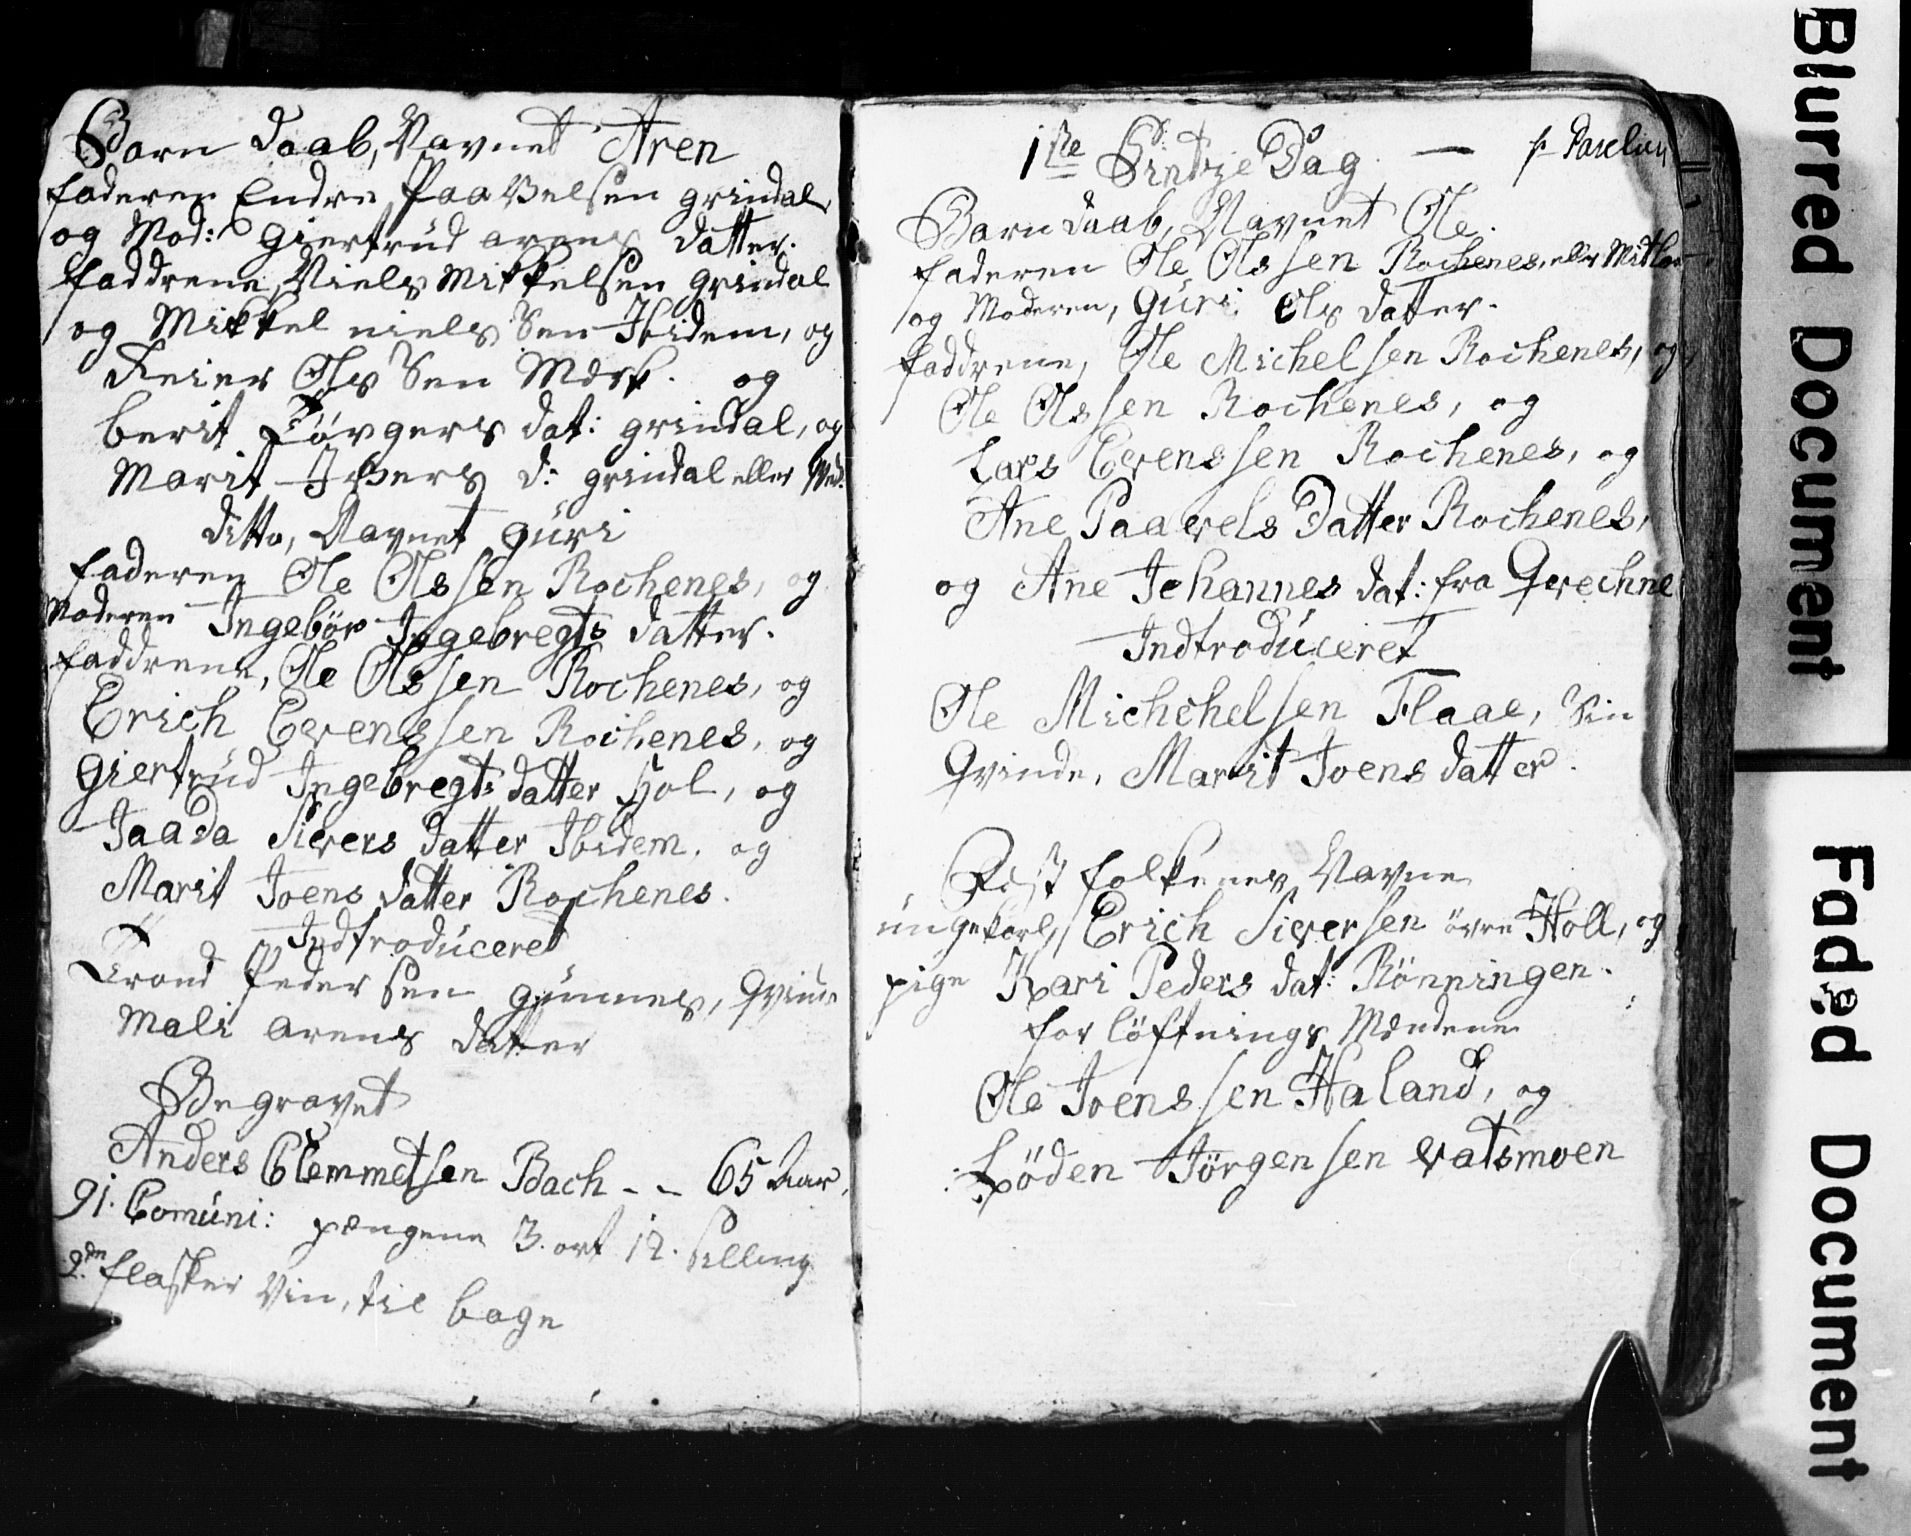 Barn Daab, Navnet Aren
faderen Endre Paavelsen grindal,
og Mod: Giertrud arens datter.
faddrene, Niels Mikkelsen grindal
og Mikkel niels Sen Ibidem, og
Reier Ols Sen Mærk. og
berit Jörgers dat: grindal, og
Marit Ifvers d: grindal eller
ditto, Navnet guri
faderen Ole Olssen Rochenes, og
Moderen Ingebör Ingebregts datter.
faddrene, Ole Olssen Rochenes, og
Erich Evenssen Rochenes, og
Giertrud Ingebregts datter Hol, og
Jaada Sivers datter Ibidem, og
Marit Joens datter Rochenes.
Indtroduceret
Trond Peder sen gunnes, Qvinde
Mali arens datter
Begravet
Anders Clemmetsen Bach - - 65 Aar,
91. Comuni: pengene 3. ort 12. skilling
2de flasker Vin, til bage
1ste Pintze Dag —
Barn daab, Navnet Ole.
faderen Ole Olssen Rochenes, eller
og Moderen, Guri Ols datter.
faddrene, Ole Michelsen Rochenes, og
Ole Olssen Rochenes, og
Lars Evenssen Rochenes, og
Ane Paavels Datter Rochenes,
og Ane Johannes dat: fra Qvechne
Indtroduceret
Ole Michchelsen Flaae, Sin
Qvinde, Marit Joens datter.
Fest folkenes Navne
ungekarl, Erich Siversen övre Holl, og
pige Kari Peders dat: Rönningen.
for löftnings Mændene
Ole Joenssen Haland, og
Løden Jörgensen vatsmoen
Blurred Document
Faded Document